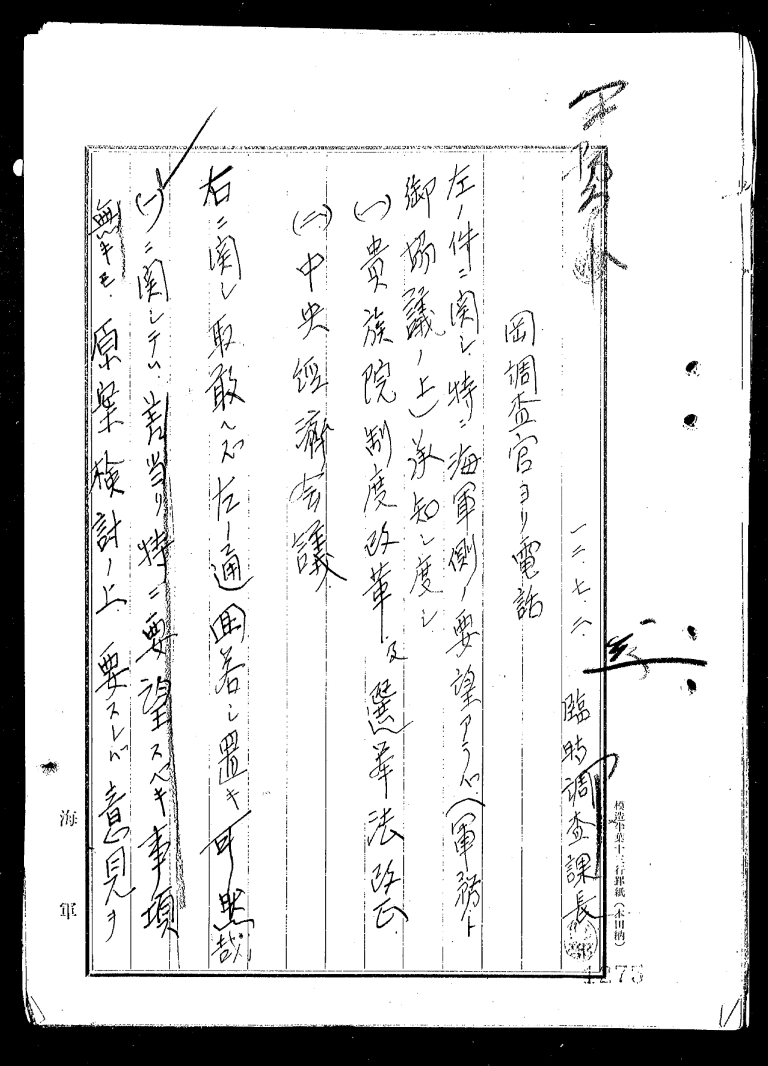 一二、七、二、 臨時調査課長
岡調査官ヨリ電話
左ノ件ニ関シ特ニ海軍側ノ要望アラバ(軍務ト
御協議ノ上)承知シ度シ
(一)貴族院制度改革及選挙法改正
(二)中央経済会議
右ニ関シ取敢ヘズ左ノ通回答シ置キ可然哉
(一)ニ関シテハ差当リ特ニ要望スベキ事項
無キモ原案検討ノ上要スレバ意見ヲ
模造半葉十三行罫紙(本田納)
海軍
1275